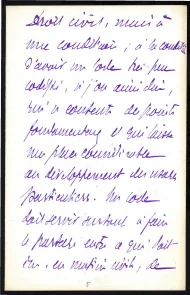 Droit civil, mais à
une condition; à la condition
d'avoir un code très peu
codifié, si j'ose ainsi dire,
qui se contente de points
fondamentaux et qui laisse
une place considérable
au développement des usages
particuliers. Un code
doit servir surtout à faire
le partage entre ce qui doit
être, en matière civile, de
5